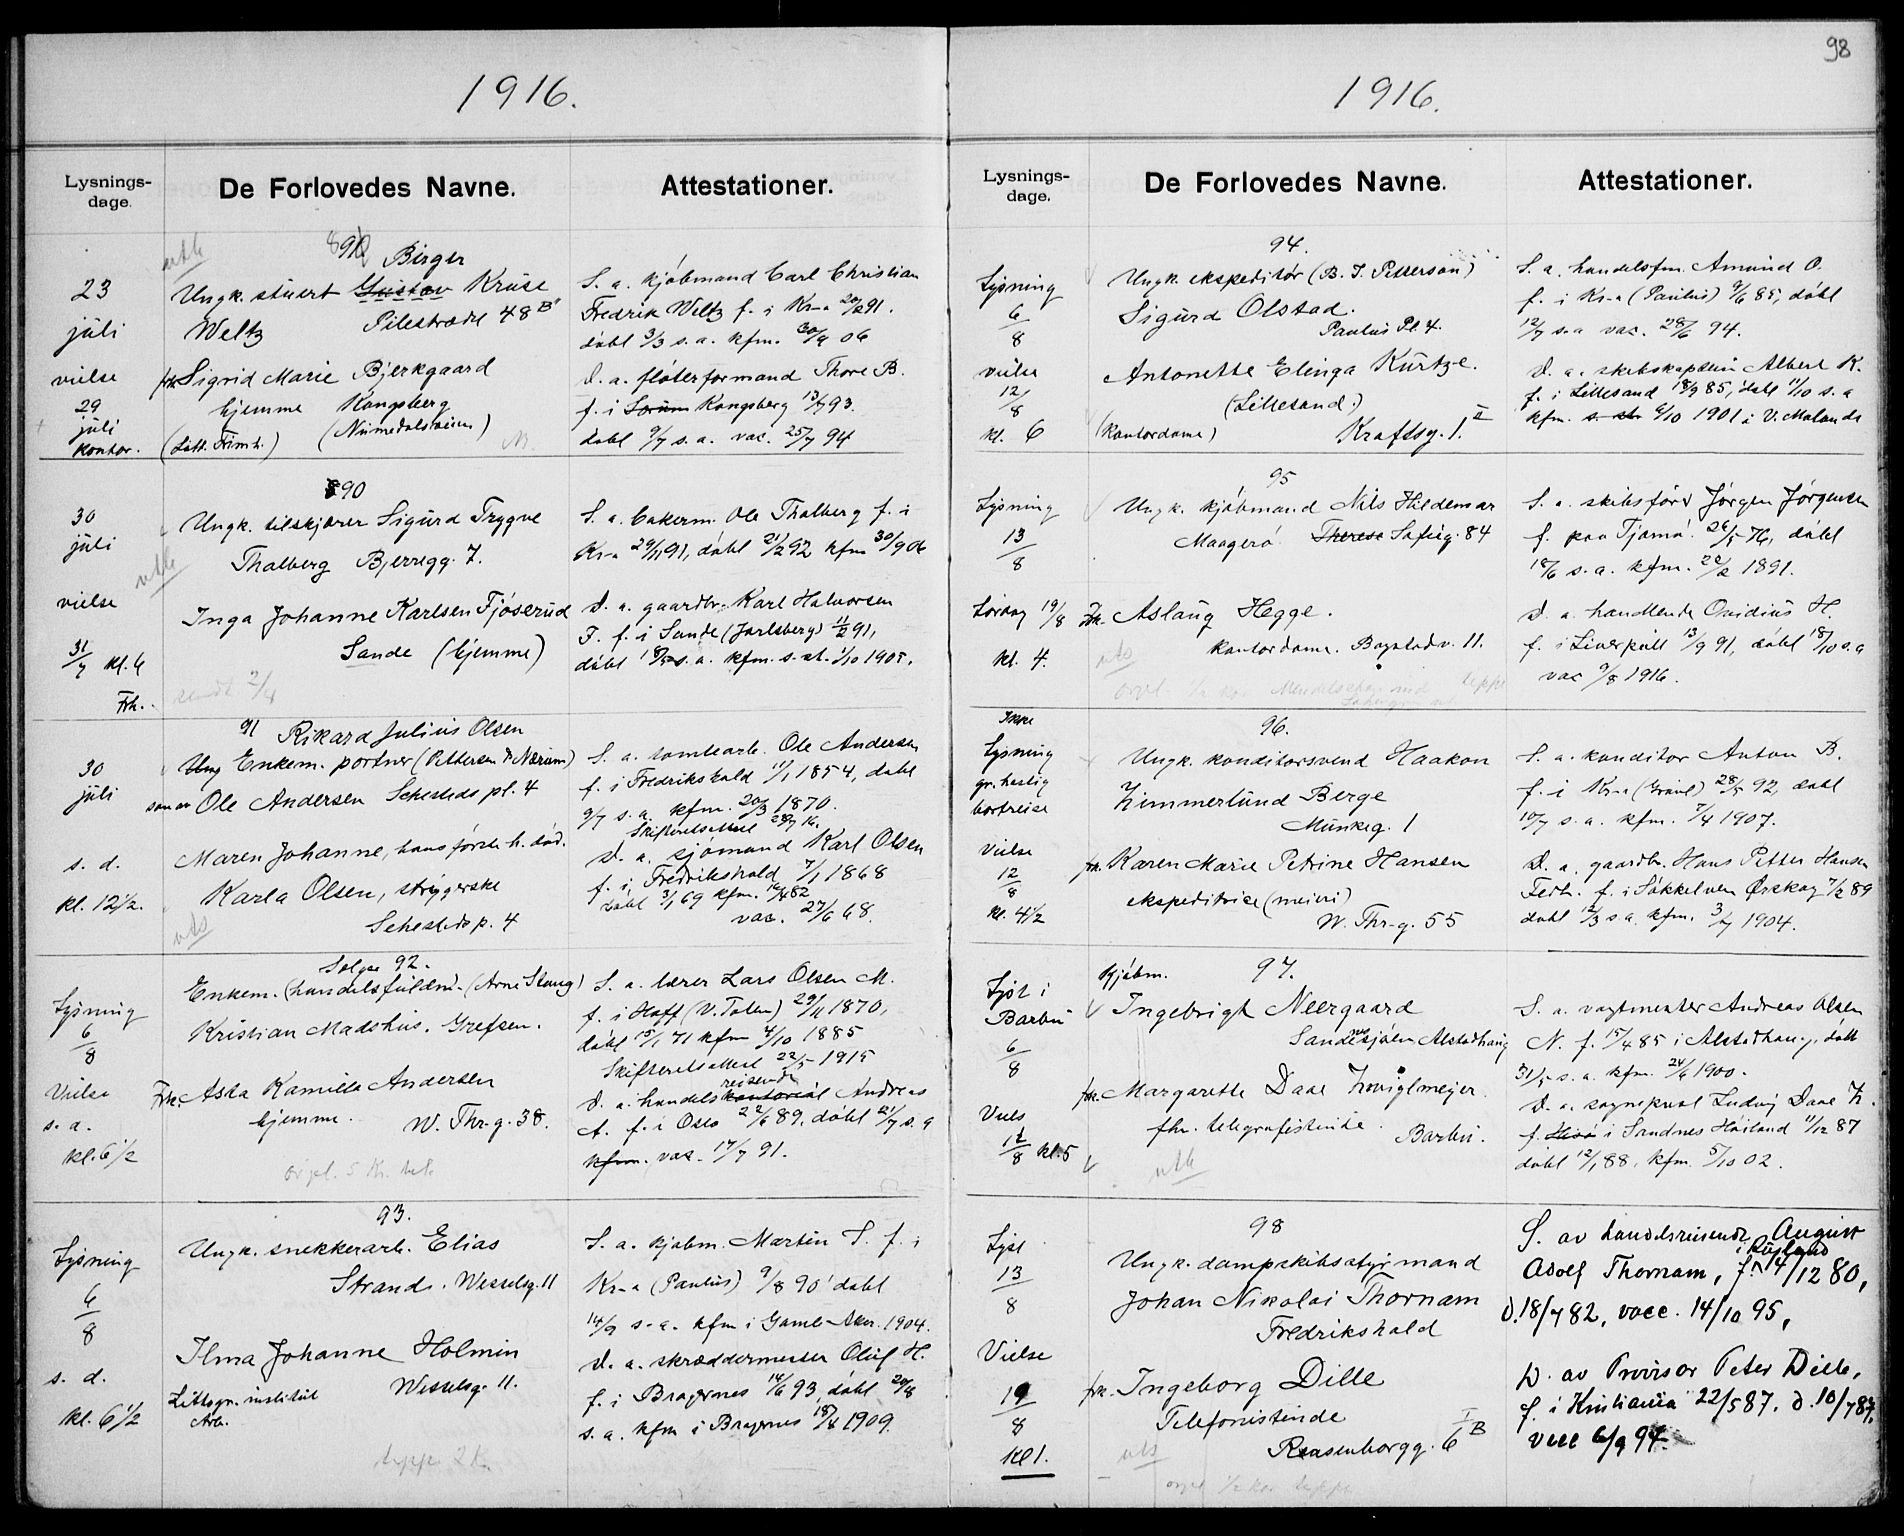 98
1916.
Lysnings-
dage.
De Forlovedes Navne.
Attestationer.
23
juli
vielse
29
juli
kontor.
89
Birger
Ungk. stuert Gustav Kruse
Weltz Pilestrædet 48 B
frk. Sigrid Marie Bjerkgaard
hjemme Kongsberg
(Numedalsveien)
S. a. kjøbmand Carl Christian
Fredrik Weltz f. i Kr-a 91.
døbt 3/3 s. a. kfm. 30/9 06
D. a. fløterformand Thore B.
f. i Kongsberg 93.
døbt 9/7 s. a. vac. 25/7 94
30
juli
vielse
31/7 kl. 6
Frk.
890
Ungk. tilskjærer Sigurd Trygve
Thalberg Bjerregg. 7.
Inga Johanne Karlsen Fjøserud
Sande (hjemme)
S. a. bakerm. Ole Thalberg f. i
Kr-a 29/11 91, døbt 21/2 92 kfm 30/9 06
D. a. gaardbr. Karl Halvorsen
F. f. i Sande (Jarlsberg) 11/2 91,
døbt 18/5 s. a. kfm. s. st. 1/10 1905.
30
juli
s. d.
kl. 12 1/2.
91 Rikard Julius Olsen
Ung Enkem. portner (Pettersen & Nærum)
søn av Ole Andersen Schesteds pl. 4
Maren Johanne, hans første h. død.
Karla Olsen, strygerske
Schesteds p. 4
S. a. tomtearb. Ole Andersen
f. i Fredrikshald 11/1 1854, døbt
9/7 s. a. kfm. 20/3 1870.
Skifteretsattest 16.
D. a. sjømand Karl Olsen
f. i Fredrikshald 7/1 1868
døbt 3/1 69 kfm. 82
vac. 27/6 68.
Lysning
6/8
Vielse
s. d.
kl. 6 1/2
92.
Enkem. (handelsfuldm. (Arne Stang)
Kristian Madshus. Grefsen.
Frk. Asta Kamilla Andersen
hjemme. W. Thr-g. 38.
orgel. 5 Kr. bet.
S. a. lærer Lars Olsen M.
f. i Hoff (V. Toten) 29/11 1870,
døbt 15/1 71 kfm 4/10 1885
Skifteretsattest 22/5 1915
reisende
D. a. handels Andreas
A. f. i Oslo 22/6 89, døbt 21/7 s. a
kfm. vac. 17/7 91.
Lysning
6/8
s. d.
kl. 6 1/2
93.
Ungk. snekkerarb. Elias
Strand. Wesselsg. 11
Ilma Johanne Holmin
Wesselsg. 11.
Littogr. institut
Arb.
S. a. kjøbm. Martin S. f. i
Kr-a (Paulus) 9/8 90 døbt
14/9 s. a. kfm i Gamle Aker. 1904.
D. a. skræddermester Oluf H.
f. i Bragernes 93, døbt
s. a. kfm i Bragernes 1909.
1916.
Lysnings-
dage.
De Forlovedes Navne.
Attestationer.
Lysning
6/8
vielse
12/8
kl. 6
94.
Ungk. ekspeditør (B. J. Petterson)
Sigurd Olstad.
Paulus Pl. 4.
Antonette Elinga Kurtze.
(Lillesand.)
(kontordame) Kraftsg. 1. II
S. a. handelsfm. Amund O.
f. i Kr-a (Paulus) 9/6 85, døbt
12/7 s. a vac. 28/6 94.
D. a. skibskaptein Albert K.
f. i Lillesand 18/9 85, døbt 11/10 s. a
kfm. s. st. 6/10 1901 i V. Molands
Lysning
13/8
Lørdag 19/8
kl. 4.
95
Ungk. kjøbmand Nils Hildemar
Maagerø. Therese Sofieg. 84
Frk. Aslaug Hegge.
kontordame. Bogstadv. 11.
S. a. skibsfører Jørgen Jørgensen
f. paa Tjømø. 26/5 76, døbt
18/6 s. a. kfm. 1891.
D. a. handlende Ovidius H.
f. i Liverpool 13/9 91, døbt 18/10 s. a
vac 9/8 1916.
Ikke
Lysning
gr. hastig
bortreise
Vielse
12/8
kl. 4 1/2
96.
Ungk. konditorsvend Haakon
Zimmerlund Berge
Munkeg. 1
frk. Karen Marie Petrine Hansen
ekspeditrice (meieri)
W. Thr-g. 55
S. a. konditor Anton B.
f. i Kr-a 28/5 92, døbt
10/7 s. a. kfm. 7/4 1907.
D. a. gaardbr. Hans Petter Hansen
f. i Søkkelven Ørskog 7/2 89
døbt 12/3 s a. kfm. 3/7 1904.
Lyst i
Barbu
6/8
Viels
12/8 kl. 5
Kjøbm. 97.
Ingebrigt Neergaard
Sandnesjøen Alstadhaug
frk. Margarethe Daae Zwinglmeyer.
fhv. telegrafistinde.
Barbu.
S. a. vagtmester Andreas Olsen
N. f. 15/4 85 i Alstadhaug, døbt
31/5 s. a. kfm. 24/6 1900.
D. a. sogneprest Ludvig Daae Z.
f. i Sandnes Høiland 11/12 87
døbt 12/1 88, kfm. 5/10 02.
Lyst
13/8
Vielse
19/8
Kl 1.
98
Ungk. dampskibsstyrmand
Johan Nikolai Thornam
Fredrikshald
frk. Ingeborg Dille
Telefonistinde
Rosenborgg. 6 B
S. av handelsreisende August
Adolf Thornam, f. 14/12 80,
d. 18/7 82, vacc. 14/10 95,
D. av Provisor Peter Dille,
f. i Kristiania 22/5 87. d. 10/7 87,
vacc 6/9 94.